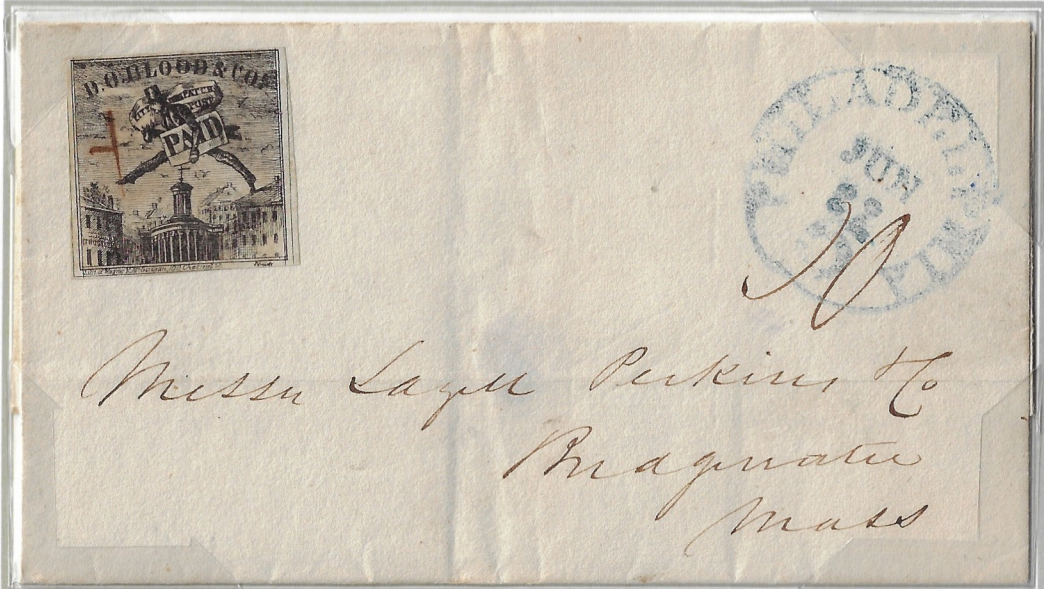 D.O.BLOOD & Co's
CITY DESPATCH
POST
PAID
PHILADELPHIA
JUN
10
Messrs Lazell Perkins & Co
Bridgewater
Mass